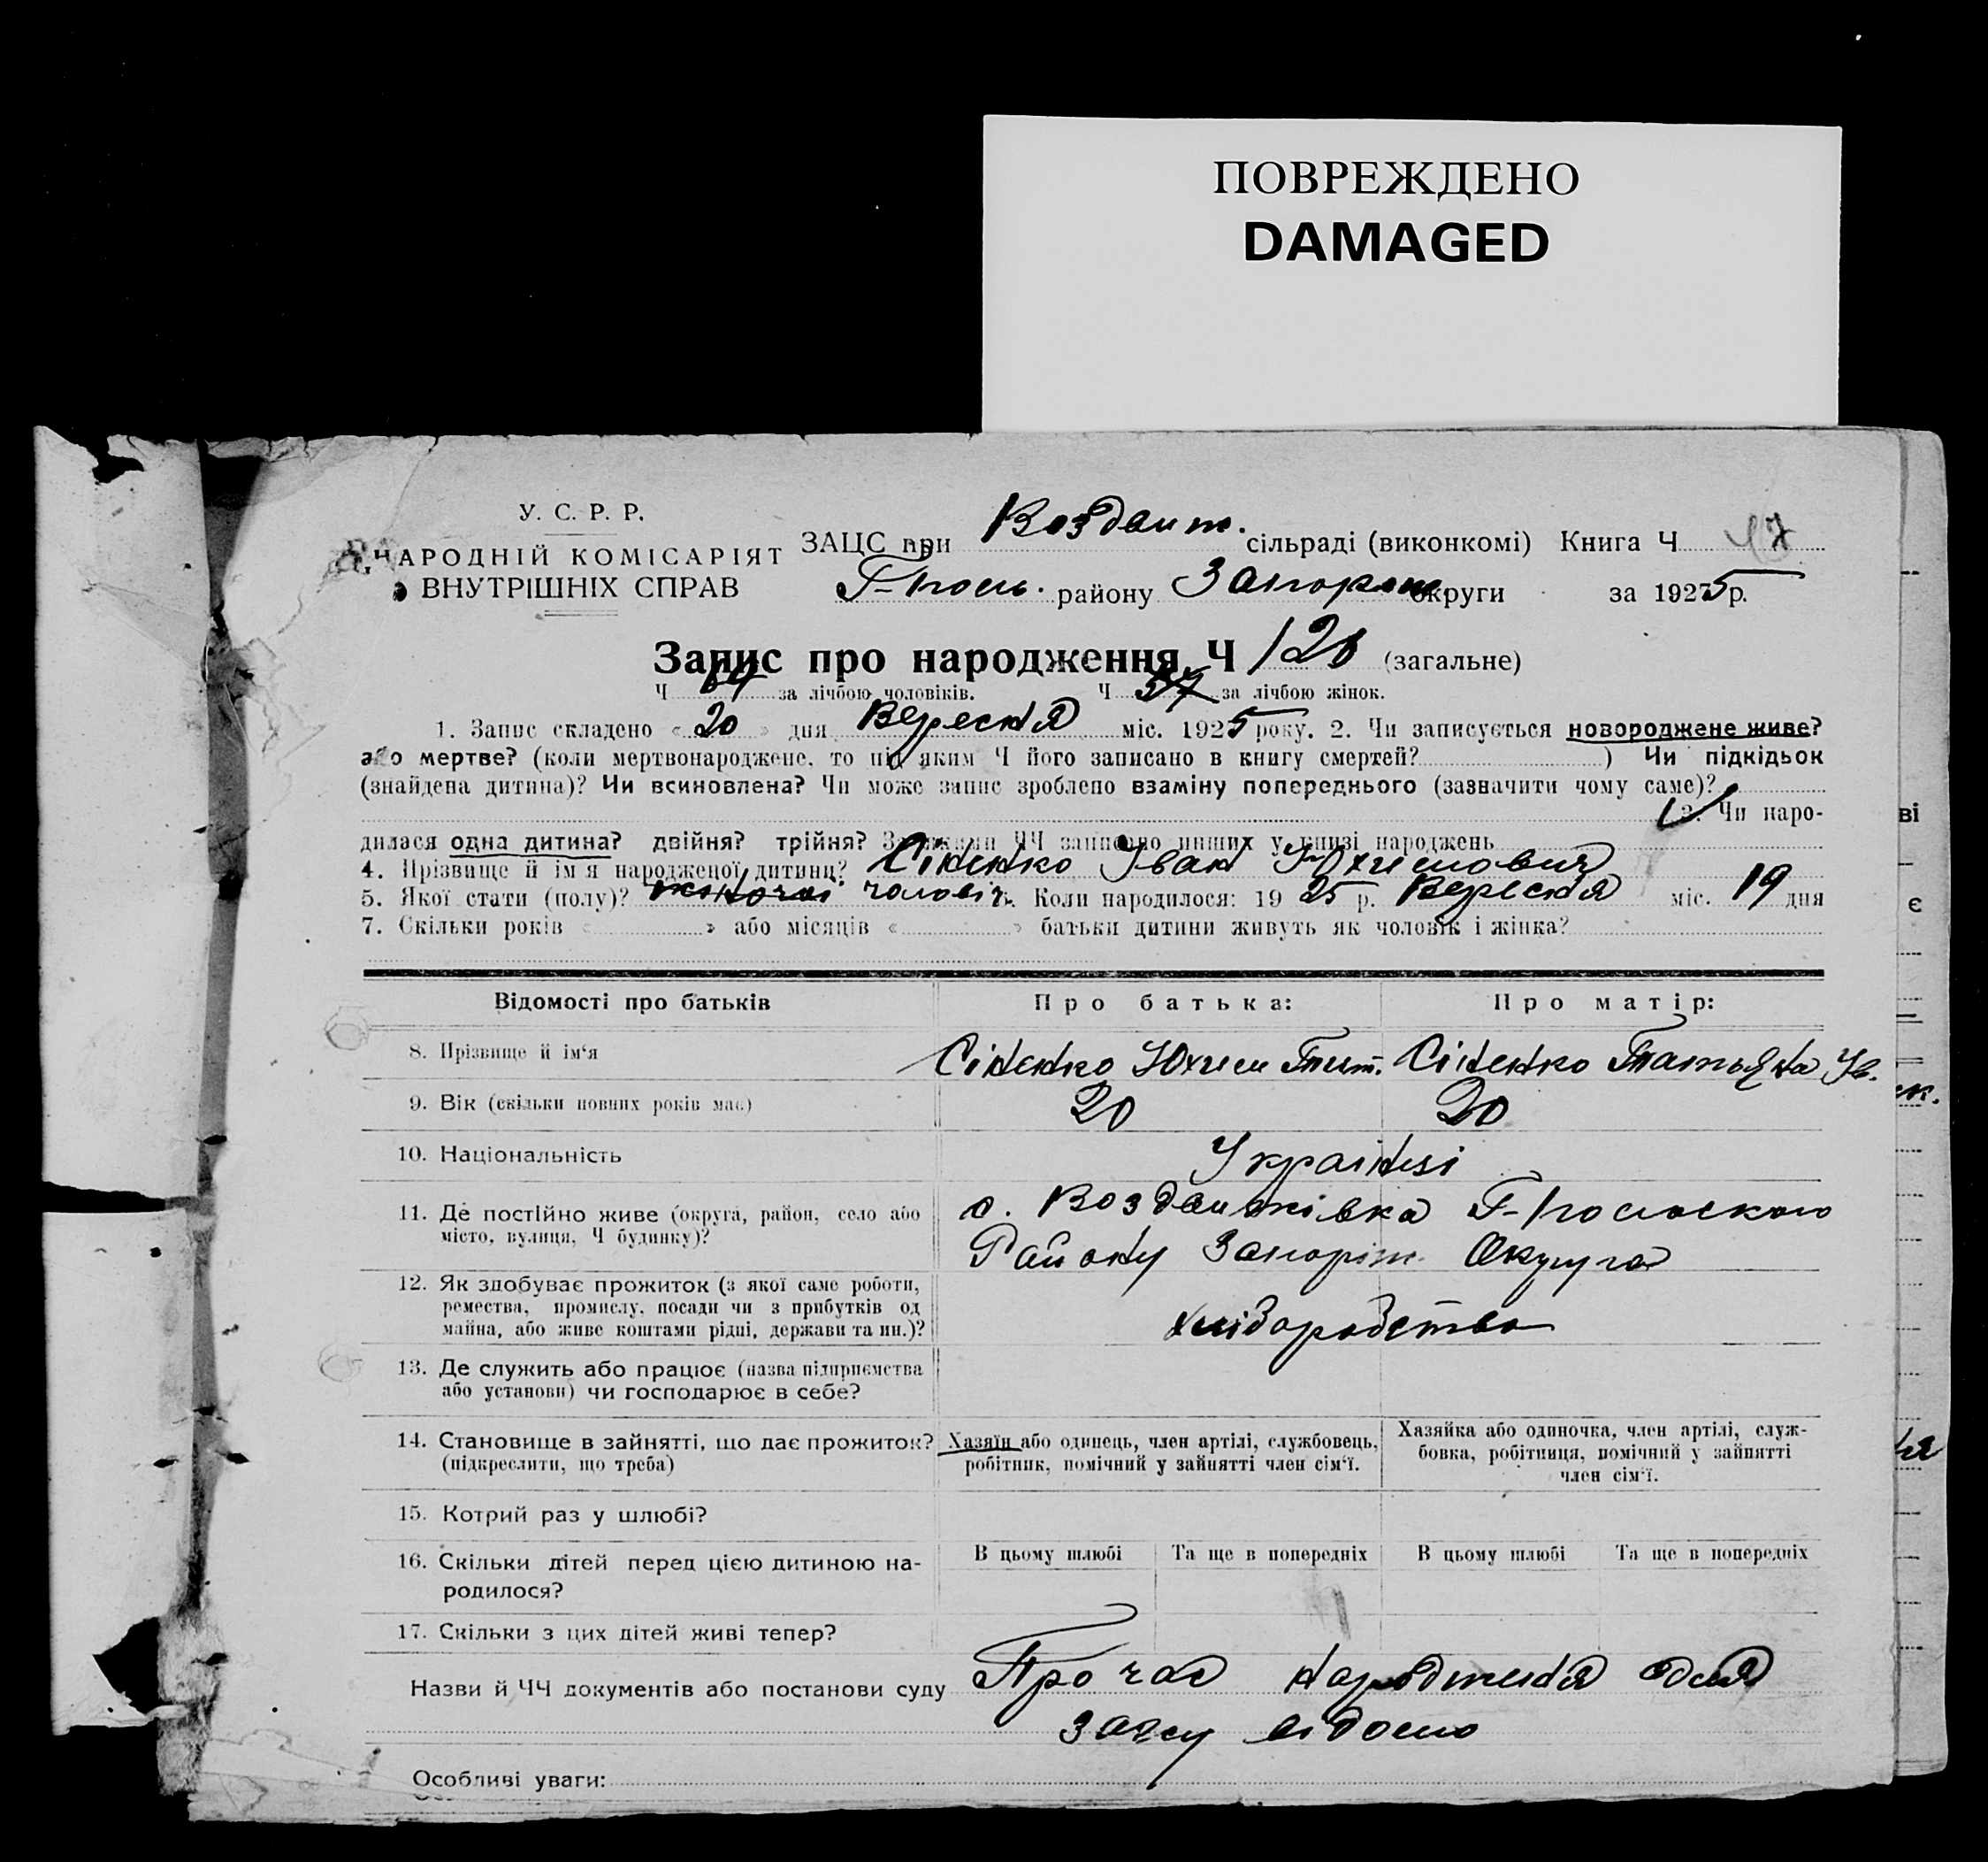 ПОВРЕЖДЕНО
DAMAGED
У. С. Р. Р.
НАРОДНІЙ КОМІСАРІЯТ
ВНУТРІШНІХ СПРАВ
ЗАЦС при Воздвиж. сільраді (виконкомі) Книга Ч
району Запоріж. округи за 1925 р.
Запис про народження Ч 120 (загальне)
Ч 64 за лічбою чоловіків. Ч 57 за лічбою жінок.
1. Запис складено « 20 » дня Вересня міс. 1925 року. 2. Чи записується новороджене живе?
або мертве? (коли мертвонароджене, то під яким Ч його записано в книгу смертей? ) Чи підкідьок
(знайдена дитина)? Чи всиновлена? Чи може запис зроблено взаміну попереднього (зазначити чому саме)?
3. Чи наро-
дилася одна дитина? двійня? трійня? За якими ЧЧ записано инших у книзі народжень
4. Прізвище й ім'я народженої дитини? Сіненко Іван Юхимович
5. Якої стати (полу)? жіночої чоловіч. Коли народилося: 1925 р. Вересня міс. 19 дня
7. Скільки років « » або місяців « » батьки дитини живуть як чоловік і жінка?
Відомості про батьків Про батька: Про матір:
8. Прізвище й ім'я Сіненко Юхим Тит. Сіненко Татьяна Ів.
9. Вік (скільки повних років має) 20 20
10. Національність Українці
11. Де постійно живе (округа, район, село або с. Воздвижівка
місто, вулиця, Ч будинку)? Району Запоріж. Округа
12. Як здобуває прожиток (з якої саме роботи,
ремества, промислу, посади чи з прибутків од
майна, або живе коштами рідні, держави та ин.)? хлібородство
13. Де служить або працює (назва підприємства
або установи) чи господарює в себе?
14. Становище в зайнятті, що дає прожиток? Хазяїн або одинець, член артілі, службовець, Хазяйка або одиночка, член артілі, служ-
(підкреслити, що треба) робітник, помічний у зайнятті член сім'ї. бовка, робітниця, помічний у зайнятті
член сім'ї.
15. Котрий раз у шлюбі?
16. Скільки дітей перед цією дитиною на- В цьому шлюбі Та ще в попередніх В цьому шлюбі Та ще в попередніх
родилося?
17. Скільки з цих дітей живі тепер?
Назви й ЧЧ документів або постанови суду Про час народження для
загсу відомо
Особливі уваги: